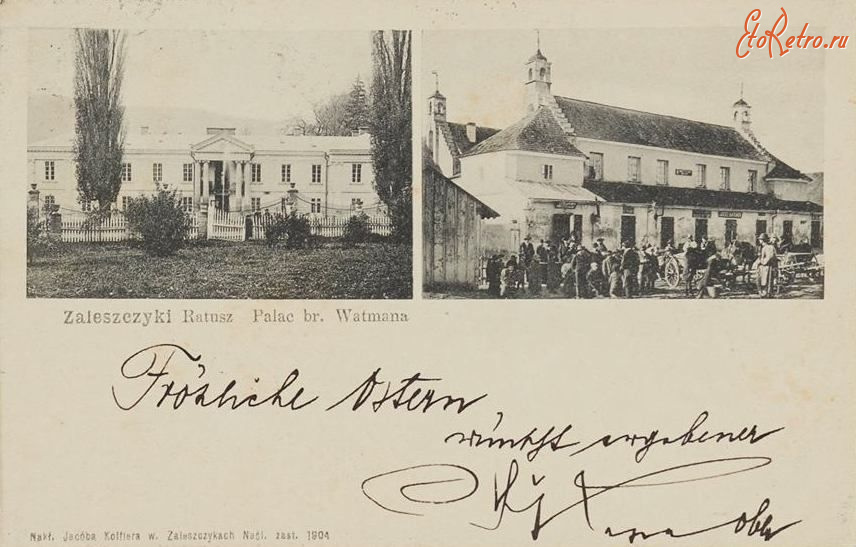 EtoRetro.ru
Zaleszczyki Ratusz Palac br. Watmana
Fröhliche Ostern
wünscht ergebener
Nakł. Jacóba Kolfiera w. Zaleszczykach Naśl. zast. 1904